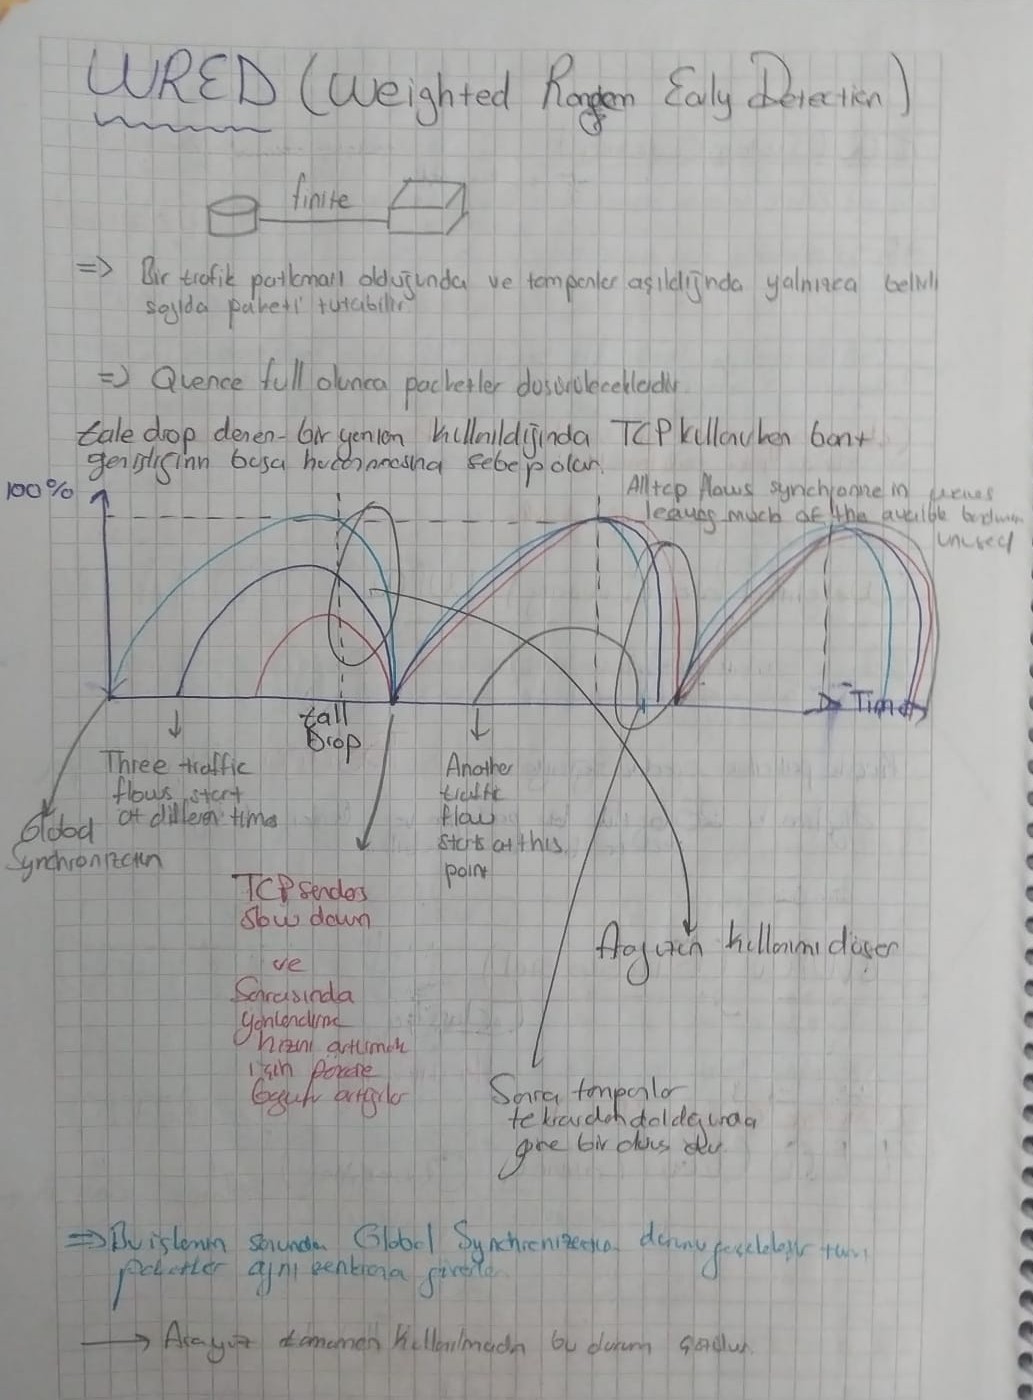 WRED (Weighted Random Early Detection)
finite
=> Bir trafik patlması olduğunda ve tamponlar aşıldığında yalnızca belirli
sayıda paketi tutabilir
=> Quence full olunca packetler düşürüleceklerdir
tale drop denen bir yöntem kullanıldığında TCP kullanırken bant
genişliğinn boşa harcanmasına sebep olur.
100%
All tcp flows synchronne in waves
leaving much of the avaible
unused
tall
Drop
Time
Three traffic
flows start
at differen time
Global
Synchronization
Another
traffic
flow
starts at this
point
TCP senders
slow down
ve
Sonrasında
yönlendirme
hızını artırmak
için pencere
boyutu artırılır
Arayüzün kullanımı düşer
Sonra tamponlar
tekrardan dolduğunda
gene bir düşüş olur
=> Bu işlemin sonunda Global Synchronization durumu gerçekleşir tüm
paketler aynı senkrona girerler
→ Arayüz tamamen kullanılmadan bu durum